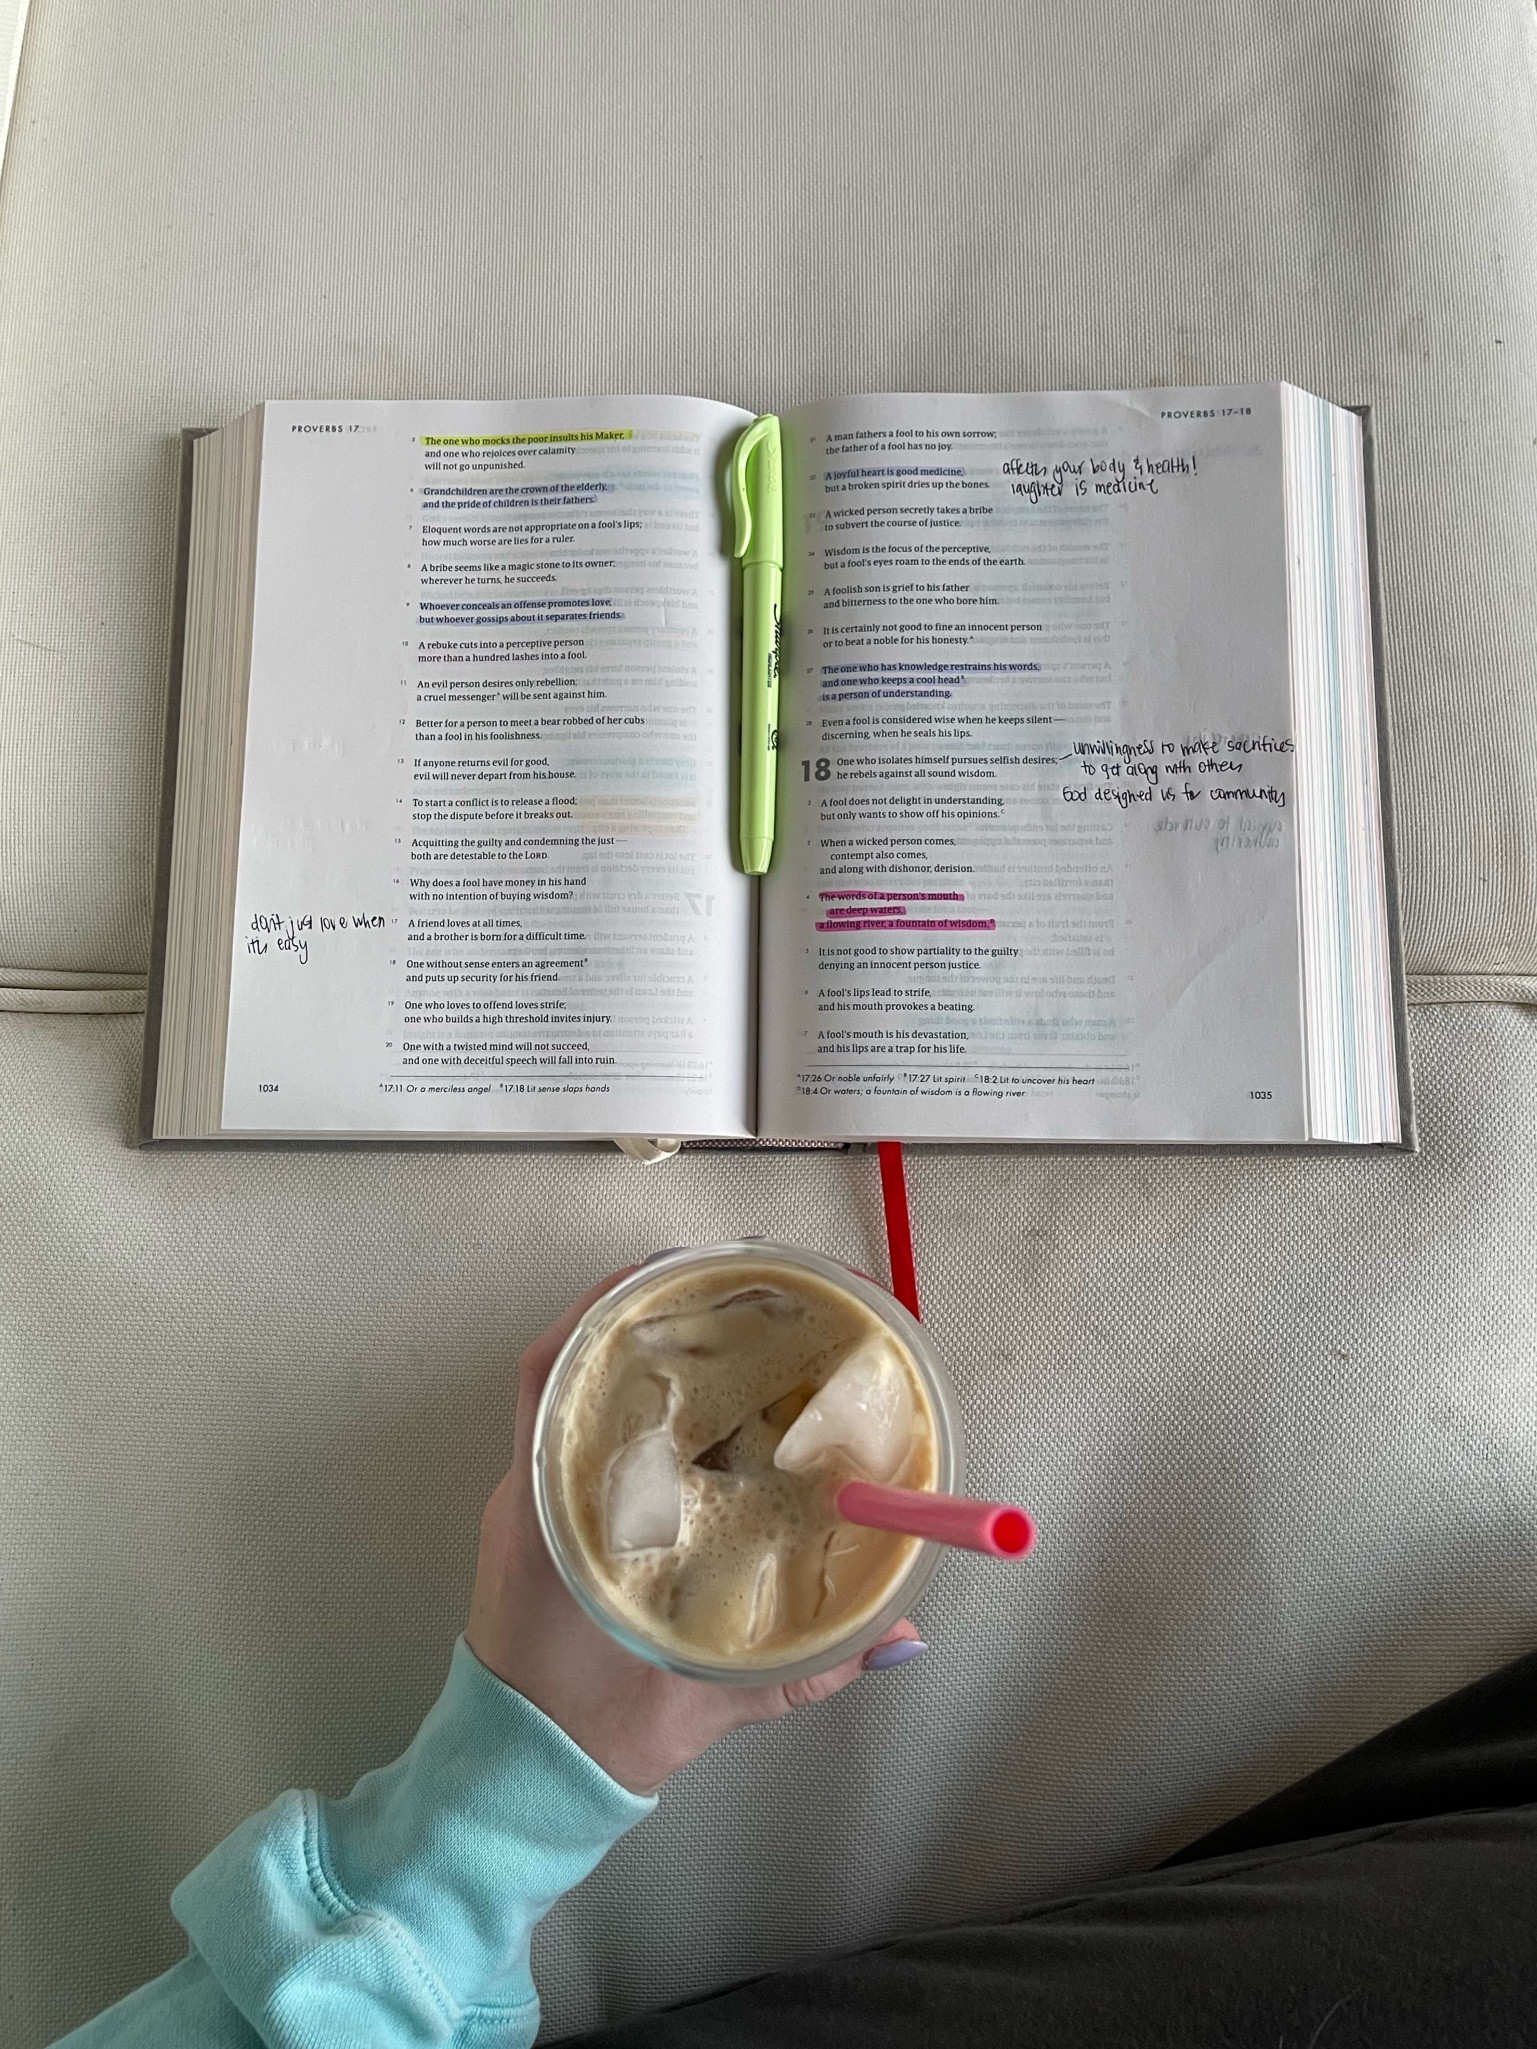 PROVERBS 17
5 The one who mocks the poor insults his Maker,
and one who rejoices over calamity
will not go unpunished.
6 Grandchildren are the crown of the elderly,
and the pride of children is their fathers.
7 Eloquent words are not appropriate on a fool's lips;
how much worse are lies for a ruler.
8 A bribe seems like a magic stone to its owner;
wherever he turns, he succeeds.
9 Whoever conceals an offense promotes love,
but whoever gossips about it separates friends.
10 A rebuke cuts into a perceptive person
more than a hundred lashes into a fool.
11 An evil person desires only rebellion;
a cruel messengerᴬ will be sent against him.
12 Better for a person to meet a bear robbed of her cubs
than a fool in his foolishness.
13 If anyone returns evil for good,
evil will never depart from his house.
14 To start a conflict is to release a flood;
stop the dispute before it breaks out.
15 Acquitting the guilty and condemning the just —
both are detestable to the LORD.
16 Why does a fool have money in his hand
with no intention of buying wisdom?
don't just love when
it's easy
17 A friend loves at all times,
and a brother is born for a difficult time.
18 One without sense enters an agreementᴮ
and puts up security for his friend.
19 One who loves to offend loves strife;
one who builds a high threshold invites injury.
20 One with a twisted mind will not succeed,
and one with deceitful speech will fall into ruin.
ᴬ17:11 Or a merciless angel ᴮ17:18 Lit sense slaps hands
1034
Sharpie
PROVERBS 17–18
21 A man fathers a fool to his own sorrow;
the father of a fool has no joy.
22 A joyful heart is good medicine,
but a broken spirit dries up the bones.
affects your body & health!
laughter is medicine
23 A wicked person secretly takes a bribe
to subvert the course of justice.
24 Wisdom is the focus of the perceptive,
but a fool's eyes roam to the ends of the earth.
25 A foolish son is grief to his father
and bitterness to the one who bore him.
26 It is certainly not good to fine an innocent person
or to beat a noble for his honesty.ᴬ
27 The one who has knowledge restrains his words,
and one who keeps a cool headᴮ
is a person of understanding.
28 Even a fool is considered wise when he keeps silent —
discerning, when he seals his lips.
18 One who isolates himself pursues selfish desires;
he rebels against all sound wisdom.
unwillingness to make sacrifices
to get along with others
God designed us for community
2 A fool does not delight in understanding,
but only wants to show off his opinions.ᶜ
3 When a wicked person comes,
contempt also comes,
and along with dishonor, derision.
4 The words of a person's mouth
are deep waters,
a flowing river, a fountain of wisdom.ᴰ
5 It is not good to show partiality to the guilty
denying an innocent person justice.
6 A fool's lips lead to strife,
and his mouth provokes a beating.
7 A fool's mouth is his devastation,
and his lips are a trap for his life.
ᴬ17:26 Or noble unfairly ᴮ17:27 Lit spirit ᶜ18:2 Lit to uncover his heart
ᴰ18:4 Or waters; a fountain of wisdom is a flowing river
1035